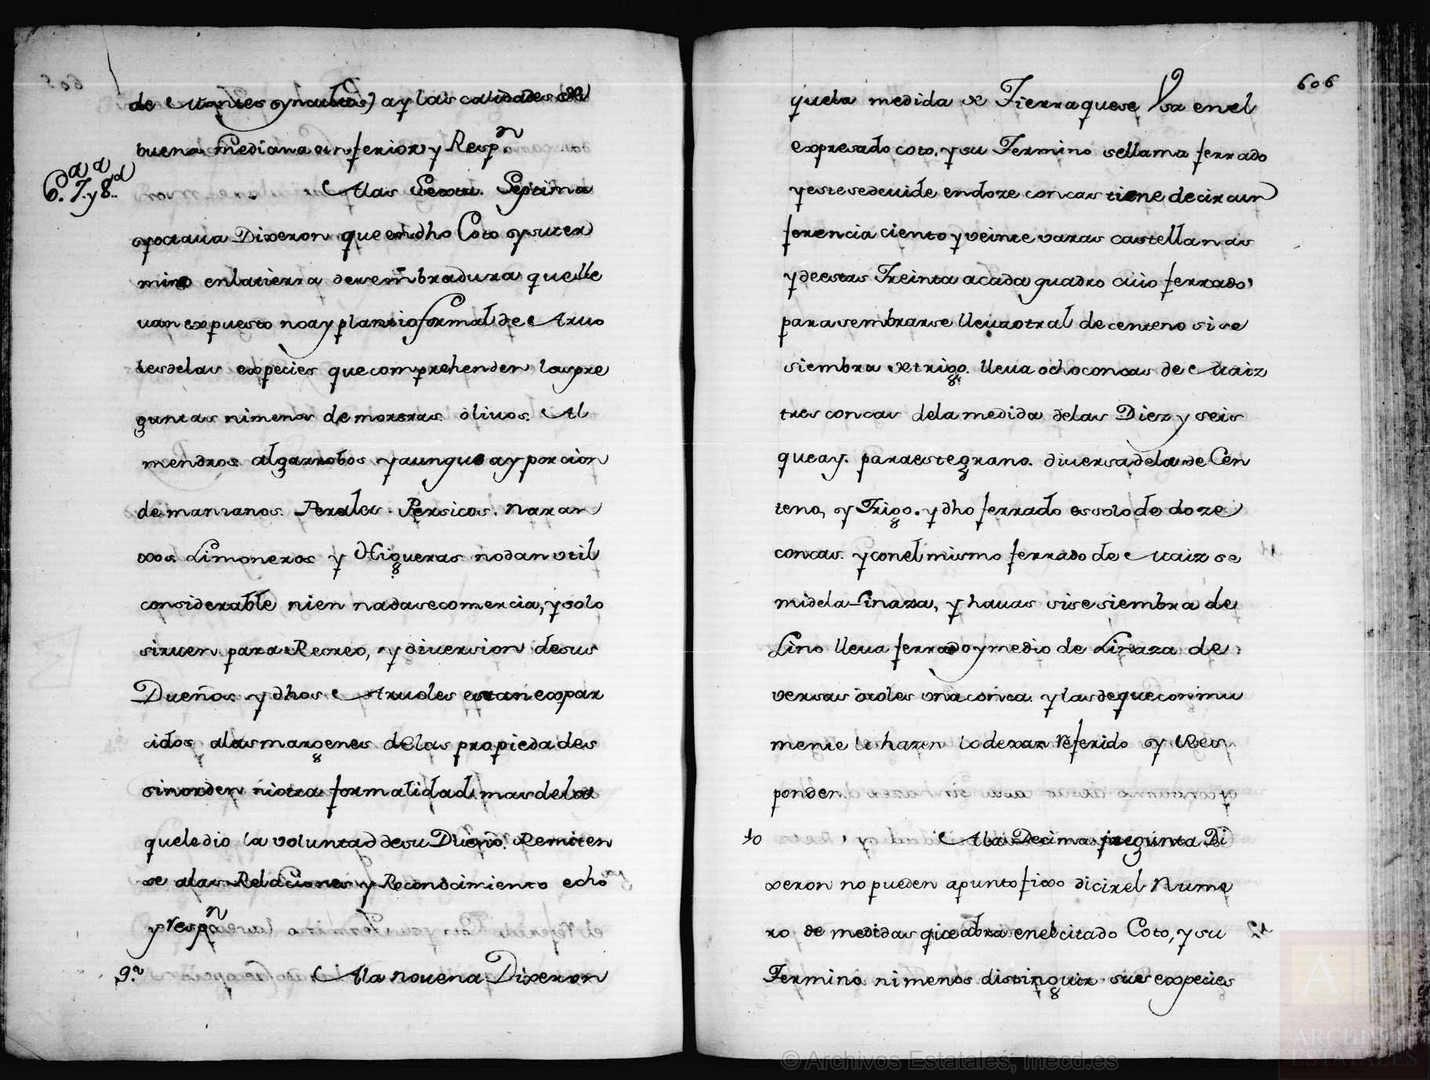 de Montes yncultos) ay las calidades de
buena mediana einferior y Resp.n
6.a 7.a y 8.a
A las Sexta. Septima
y octaua Dixeron que en dho Coto y su ter
mino en la tierra de sembradura que lle
uan expuesto no ay plantio formal de Aruo
les de las expecies que comprehenden las pre
guntas ni menos de moreras. oliuos. Al
mendros algarrobos y aunque ay porcion
de manzanos. Perales. Persicos. naran
xos. Limoneros y Higueras no dan vtil
considerable ni en nada se comercia, y solo
siruen para Recreo, y diuersion de sus
Dueños. y dhos Aruoles estan expar
cidos a las margenes de las propiedades
sin orden ni otra formalidad, mas de la
que le dio la voluntad de su Dueño. Remiten
se a las Relaciones y Reconocimiento echo
y resp.n
9.a
A la nouena Dixeron
606
que la medida de Tierra que se Vsa en el
expresado coto. y su Termino se llama ferrado
y este se deuide en doze concas tiene de circun
ferencia ciento y veinte varas castellanas
y de estas Treinta a cada quadro cuio ferrado
para sembrarse lleua otral de centeno si se
siembra de trigo. lleua ocho concas de Maiz
tres concas de la medida de las Diez y seis
que ay. para este grano. diuersa de la de Cen
teno, y Trigo. y dho ferrado es solo de doze
concas. y con el mismo ferrado de Maiz se
mide la Linaza, y hauas si se siembra de
Lino lleua ferrado y medio de Linaza de
versas ôroles vna conca. y las de que conmu
mente le hazen lo dexan Referido y Res
ponden.
10
A la Decima pregunta Di
xeron no pueden apunto fixo dicir el Nume
ro de medidas que abra en el citado Coto, y su
Termino ni menos distinguir sus expecies
© Archivos Estatales, mecd.es
ARCHIVOS
ESTATALES